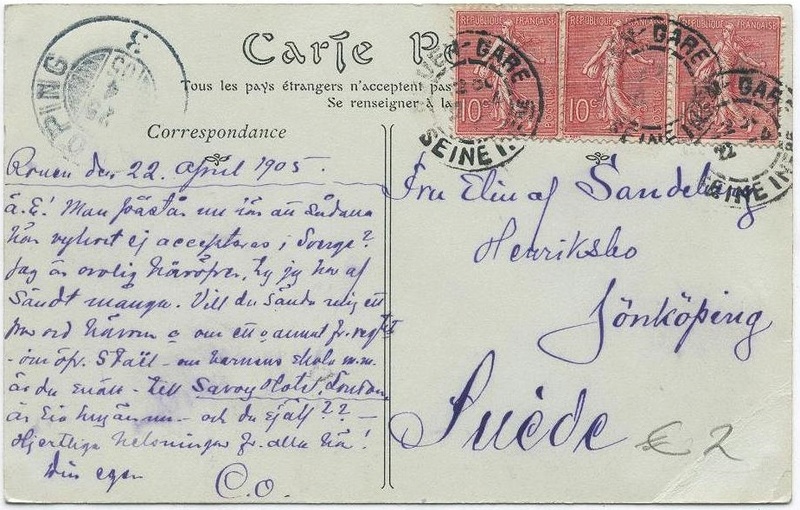 Carte Po
Tous les pays étrangers n'acceptent pas
Se renseigner à la
RÉPUBLIQUE FRANÇAISE
10 c
RÉPUBLIQUE FRANÇAISE
10 c
RÉPUBLIQUE FRANÇAISE
10
GARE
SEINE IN
GARE
SEINE IN
GAR
SEINE INF
PING
3
Correspondance
Rouen den 22. April 1905.
Ä.E! Man påstår nu här att sådana
här vykort ej accepteras i Sverge?
Jag är orolig häröfver, ty jag har af
sändt många. Vill du sända mig ett
par ord härom o om ett o annat fr.
- om öfv. Staël - om barnens skola m.m.
är du snäll - till Savoy Hotel, London
är - och du själf ?? -
Hjertliga helsningar fr. alla här!
Din egen
C.O.
Fru Elin af Sandeberg
Henriksbo
Jönköping
Suède
€ 2